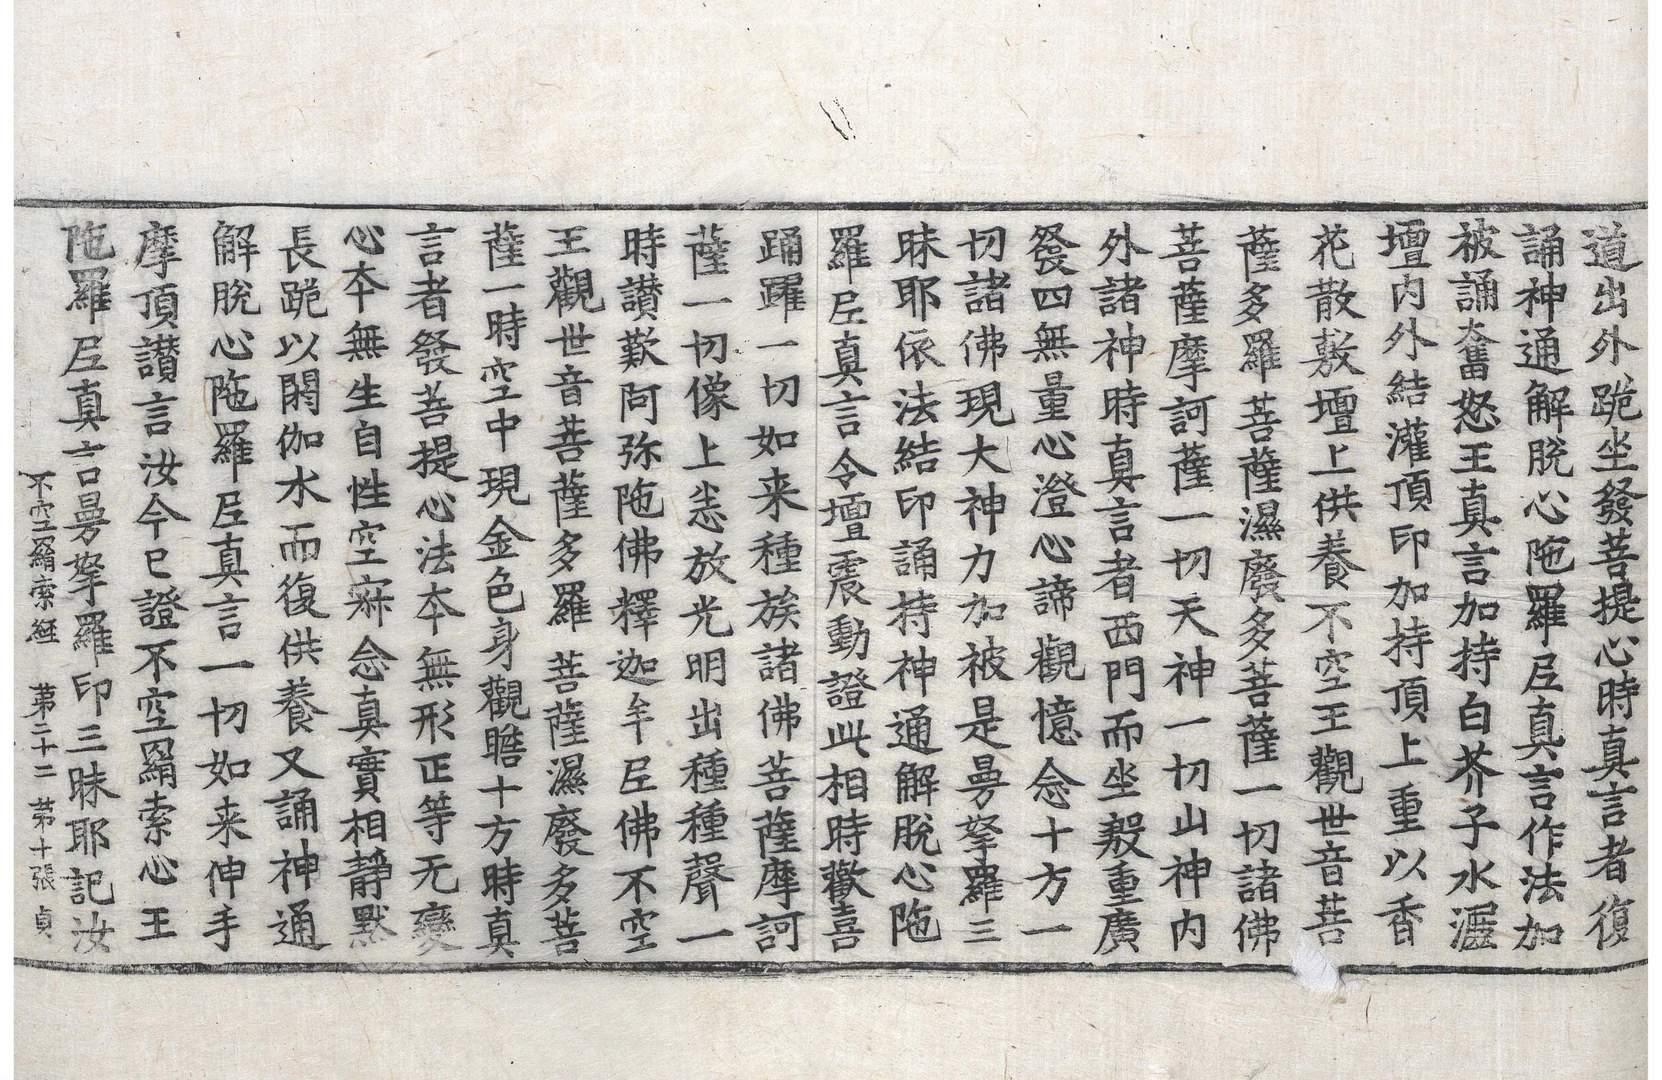 道出外跪坐發菩提心時真言者復
誦神通解脫心陁羅尼真言作法加
被誦奮怒王真言加持白芥子水灑
壇內外結灌頂印加持頂上重以香
花散敷壇上供養不空王觀世音菩
薩多羅菩薩濕廢多菩薩一切諸佛
菩薩摩訶薩一切天神一切山神內
外諸神時真言者西門而坐䝿重廣
發四無量心澄心諦觀憶念十方一
切諸佛現大神力加被是曼拏羅三
昧耶依法結印誦持神通解脫心陁
羅尼真言令壇震動證此相時歡喜
踊躍一切如来種族諸佛菩薩摩訶
薩一切像上悉放光明出種種聲一
時讃歎阿弥陁佛釋迦牟尼佛不空
王觀世音菩薩多羅菩薩濕廢多菩
薩一時空中現金色身觀瞻十方時真
言者發菩提心法本無形正等无變
心本無生自性空寂念真實相靜默
長跪以閼伽水而復供養又誦神通
解脫心陁羅尼真言一切如来伸手
摩頂讃言汝今已證不空羂索心王
陁羅尼真言曼拏羅印三昧耶記汝
不空羂索経 第二十二 第十張 貞